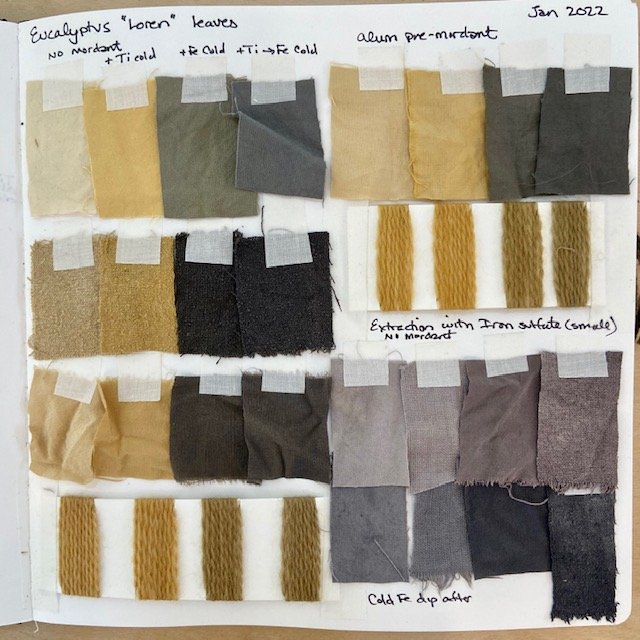 Eucalyptus "Loren" leaves
Jan 2022
No mordant + Ti cold + Fe Cold + Ti → Fe Cold
alum pre-mordant
Extraction with Iron sulfate (smale)
No Mordant
Cold Fe dip after